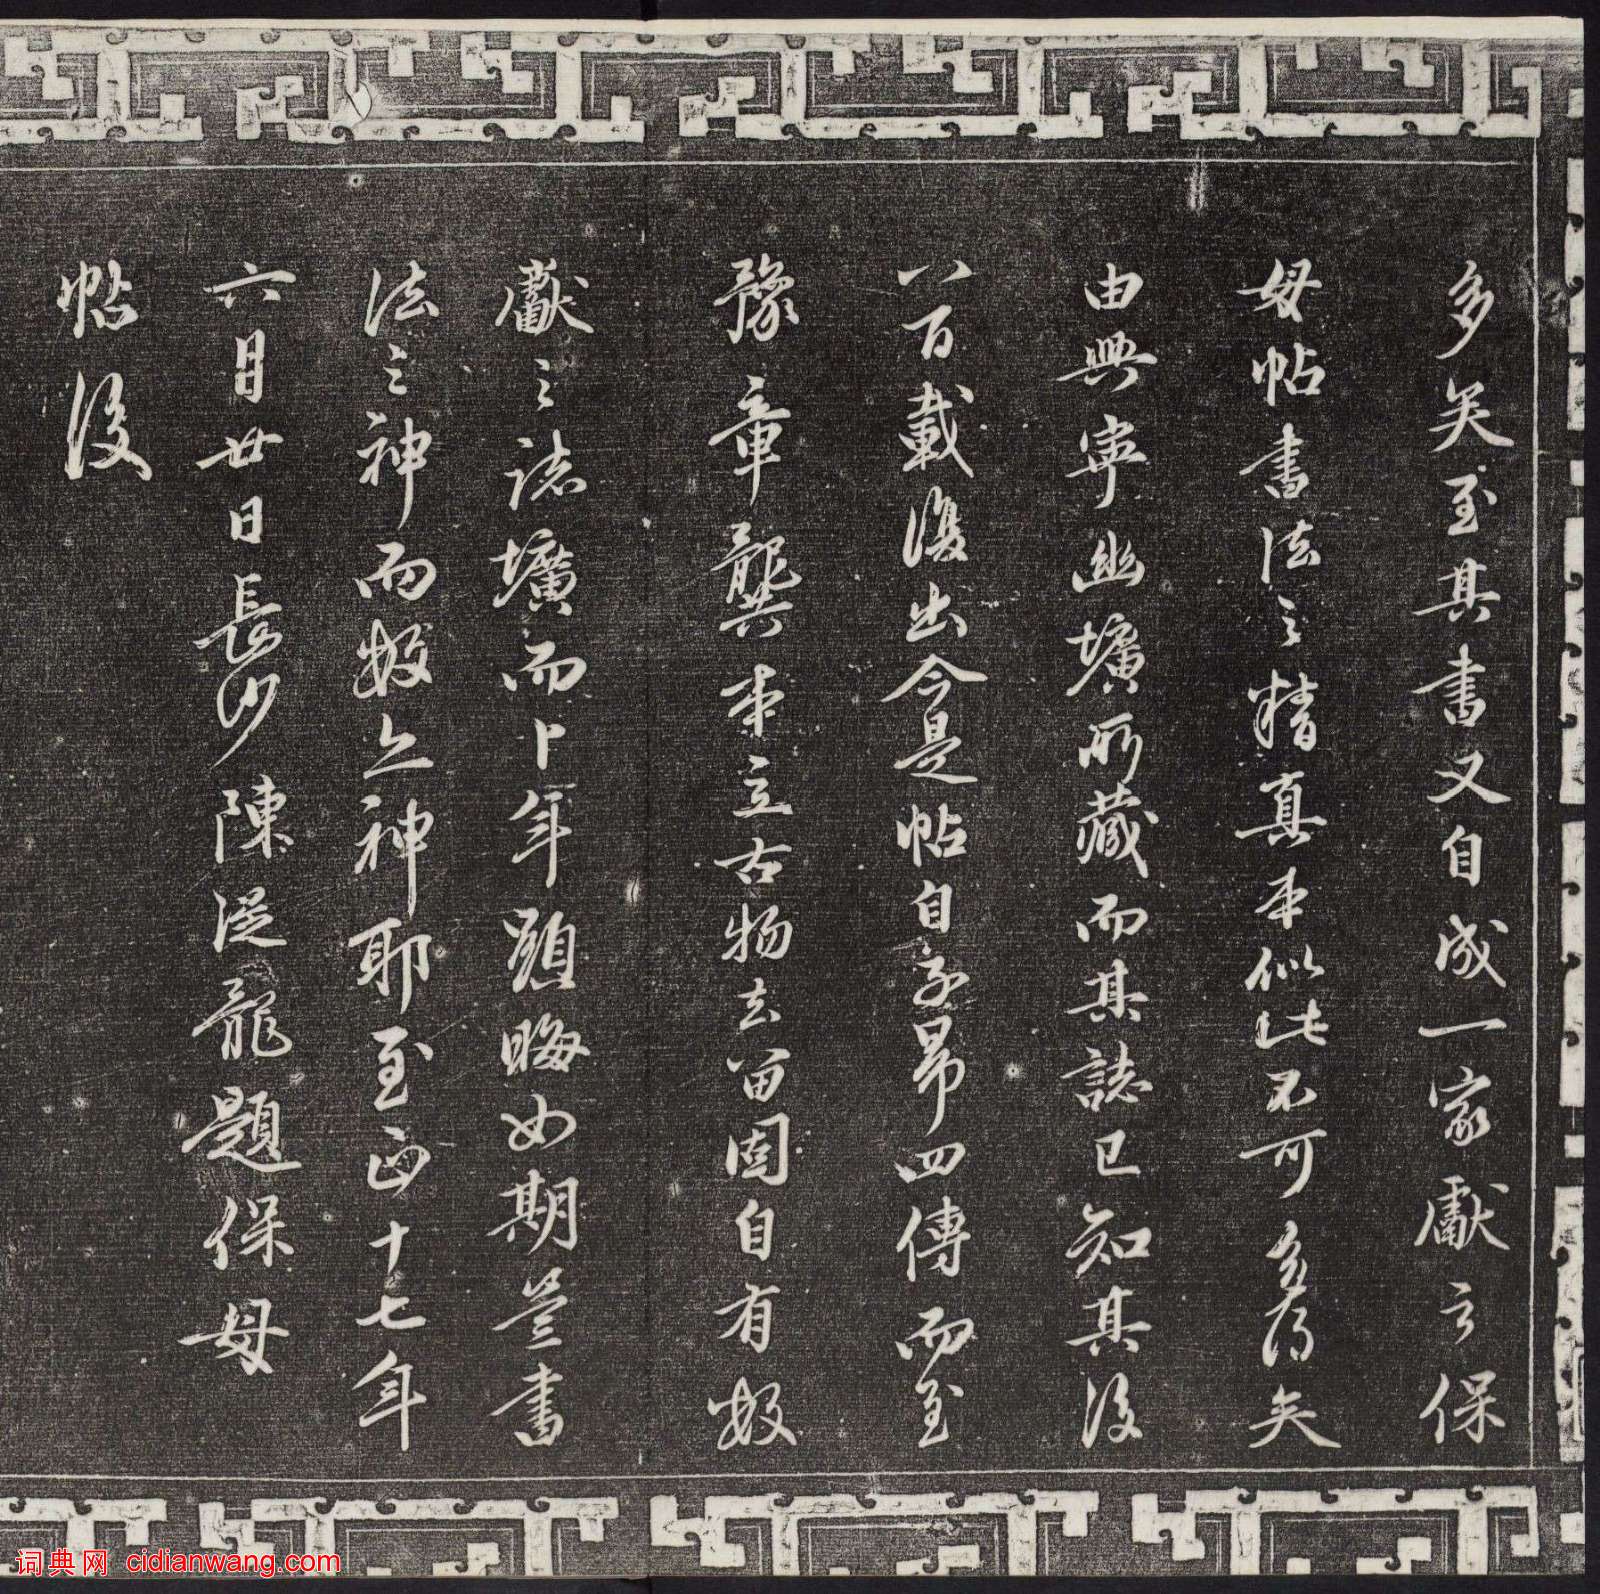 多矣至其書又自成一家獻之保
母帖書法之精真本似此不可多得矣
由興寧幽壙所藏而其誌已知其後
八百載復出今是帖自子昂四傳而至
豫章龔本立古物去留固自有數
獻之誌壙而卜年顯晦如期豈書
法之神而數亦神耶至正十七年
六月廿日長沙陳從龍題保母
帖後
词典网 cidianwang.com